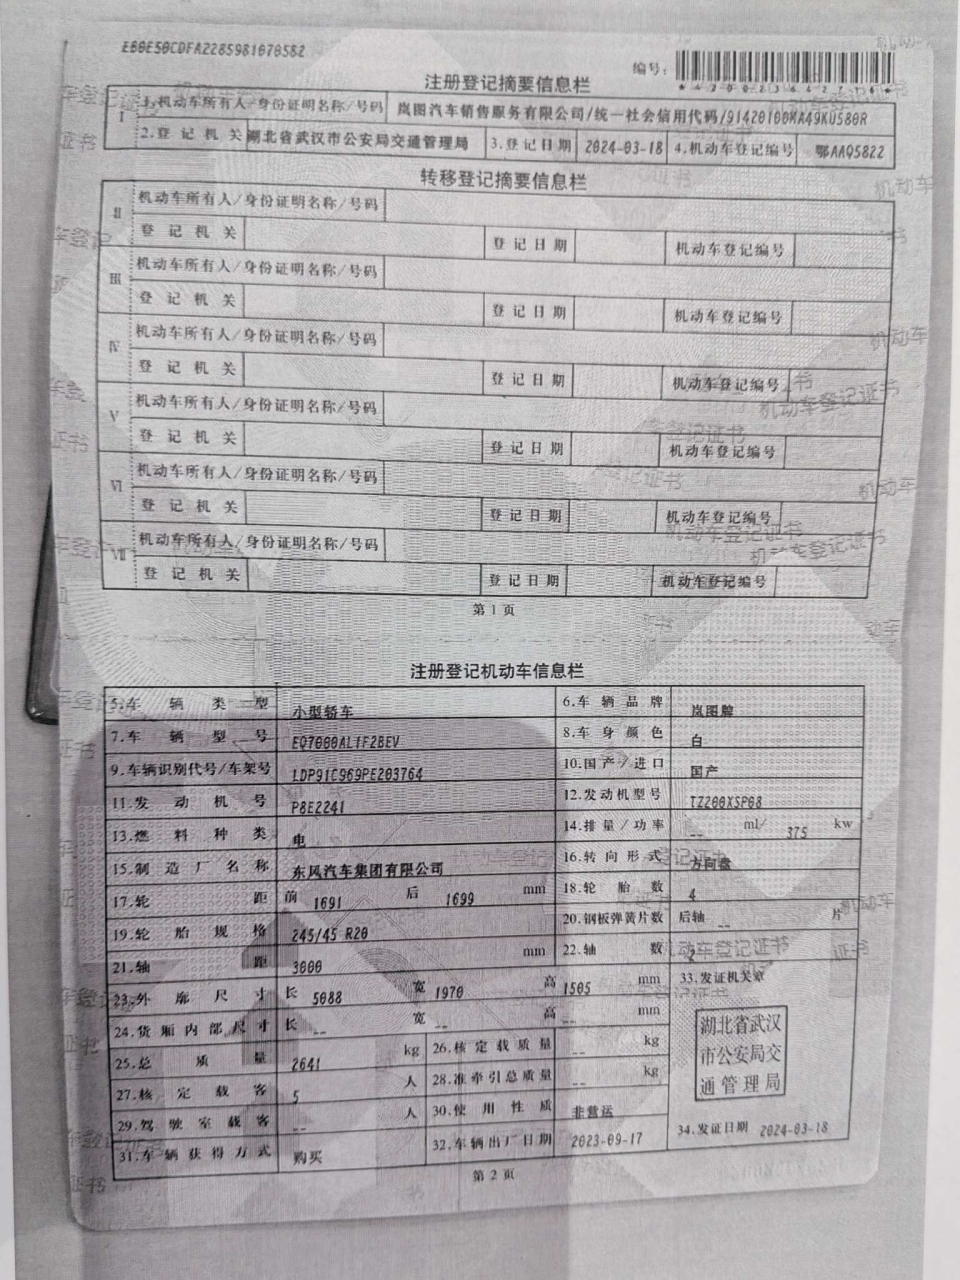 EB0E50CDFA2285981070582
编号:
注册登记摘要信息栏
I 1.机动车所有人/身份证明名称/号码 岚图汽车销售服务有限公司/统一社会信用代码/91420100MA49KU580R
2.登记机关 湖北省武汉市公安局交通管理局 3.登记日期 2024-03-18 4.机动车登记编号 鄂AAQ5822
转移登记摘要信息栏
II 机动车所有人/身份证明名称/号码
登记机关 登记日期 机动车登记编号
III 机动车所有人/身份证明名称/号码
登记机关 登记日期 机动车登记编号
IV 机动车所有人/身份证明名称/号码
登记机关 登记日期 机动车登记编号
V 机动车所有人/身份证明名称/号码
登记机关 登记日期 机动车登记编号
VI 机动车所有人/身份证明名称/号码
登记机关 登记日期 机动车登记编号
VII 机动车所有人/身份证明名称/号码
登记机关 登记日期 机动车登记编号
第1页
注册登记机动车信息栏
5.车辆类型 小型轿车 6.车辆品牌 岚图牌
7.车辆型号 EQ7000AL1F2BEV 8.车身颜色 白
9.车辆识别代号/车架号 LDP91C969PE203764 10.国产/进口 国产
11.发动机号 P8E2241 12.发动机型号 TZ200XSP08
13.燃料种类 电 14.排量/功率 -- ml/ 375 kw
15.制造厂名称 东风汽车集团有限公司 16.转向形式 方向盘
17.轮距 前 1691 后 1699 mm 18.轮胎数 4
19.轮胎规格 245/45 R20 20.钢板弹簧片数 后轴 -- 片
21.轴距 3000 mm 22.轴数 2
23.外廓尺寸 长 5088 宽 1970 高 1505 mm 33.发证机关章
24.货厢内部尺寸 长 -- 宽 -- 高 -- mm
25.总质量 2641 kg 26.核定载质量 -- kg
27.核定载客 5 人 28.准牵引总质量 -- kg
29.驾驶室载客 -- 人 30.使用性质 非营运
31.车辆获得方式 购买 32.车辆出厂日期 2023-09-17 34.发证日期 2024-03-18
湖北省武汉
市公安局交
通管理局
第2页